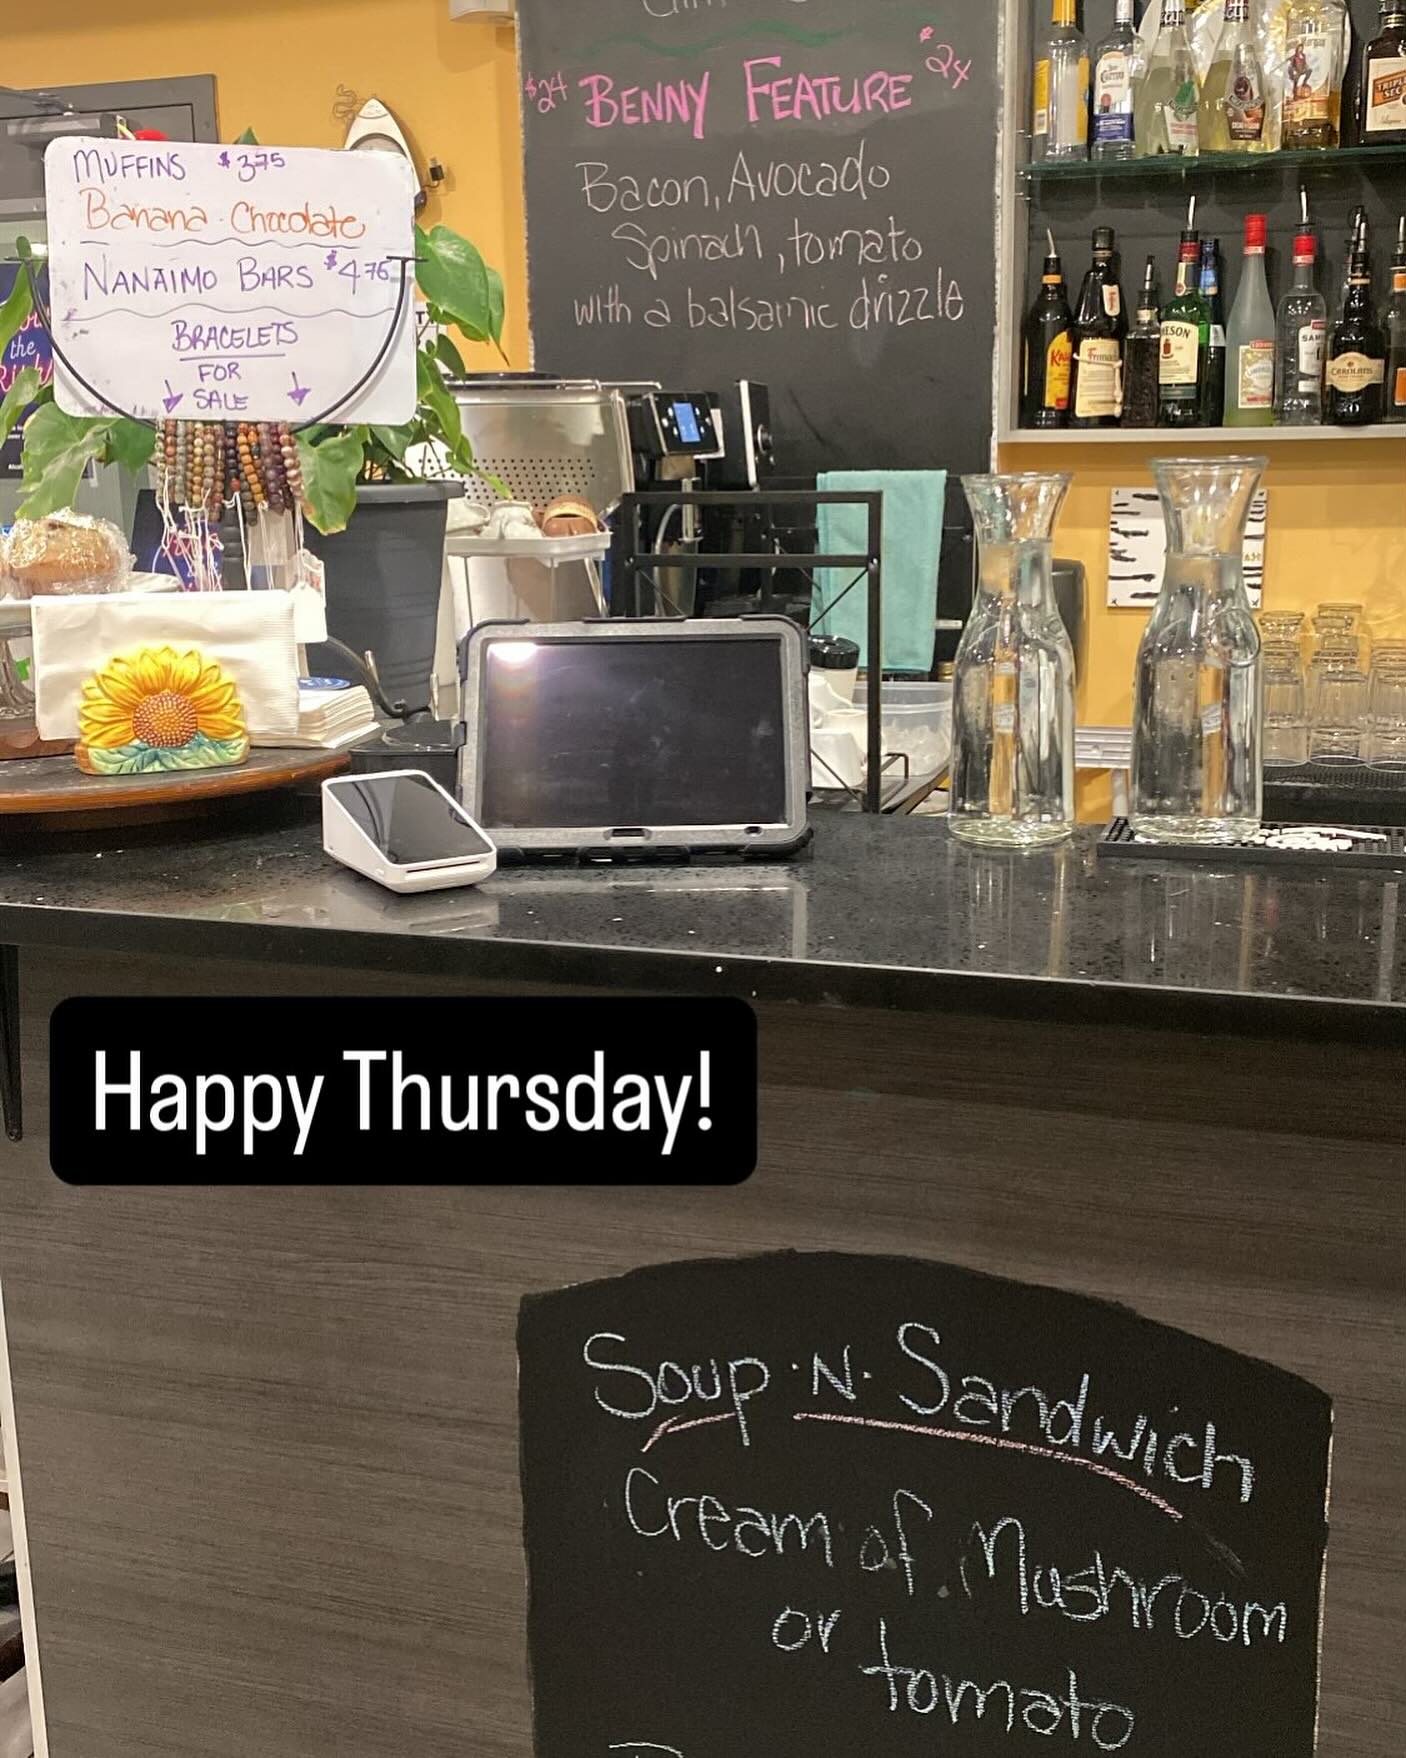 $24 BENNY FEATURE $24
Bacon, Avocado
Spinach, tomato
with a balsamic drizzle
MUFFINS $3.75
Banana Chocolate
NANAIMO BARS $4.75
BRACELETS
FOR
SALE
the
TRIPLE
SEC
CAROLANS
Happy Thursday!
Soup ·N· Sandwich
Cream of Mushroom
or
tomato